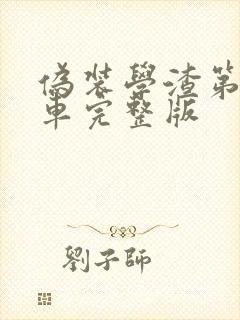 偽裝學渣第
車完整版
劉子師